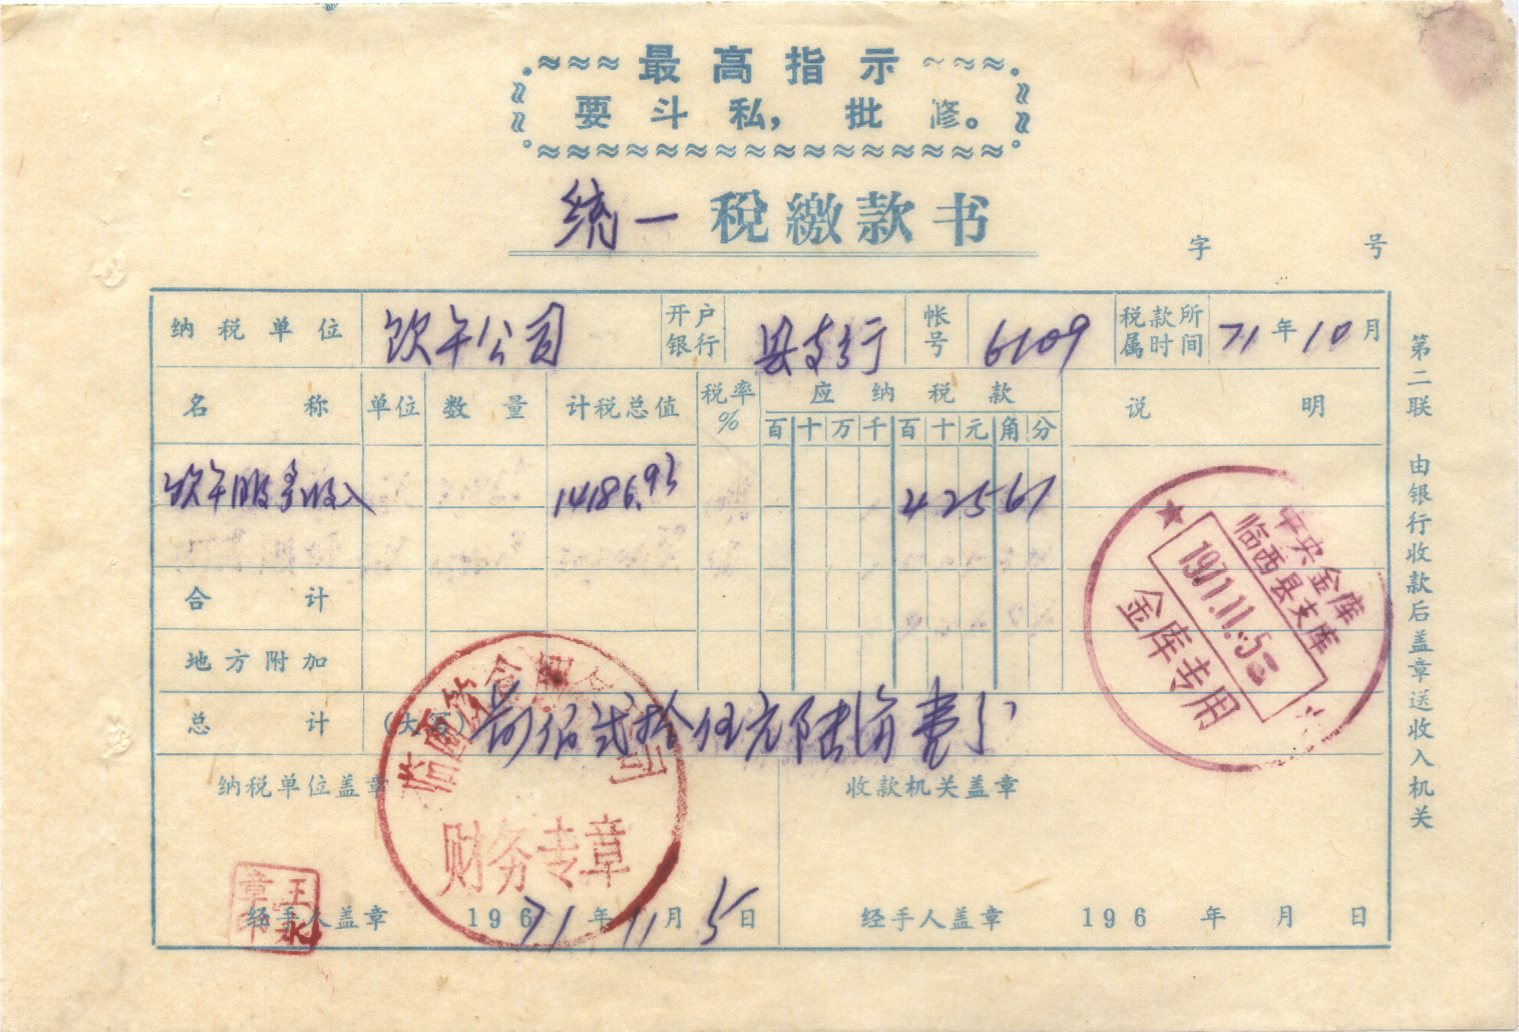 最高指示
要斗私，批修。
统一税缴款书
字 号
纳税单位 饮午公司 开户银行 县支行 帐号 6109 税款所属时间 71年10月
名称 单位 数量 计税总值 税率% 应纳税款 说明
百 十 万 千 百 十 元 角 分
饮午服务收入 14186.93 425 61
合计
地方附加
总计 (大写) 肆佰弍拾伍元陆角壹分
纳税单位盖章 收款机关盖章
经手人盖章 196 71年11月5日 经手人盖章 196 年 月 日
第二联 由银行收款后盖章送收入机关
中央金库
临西县支库
1971.11.5
金库专用
财务专章